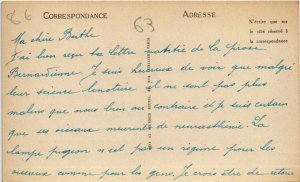 86
CORRESPONDANCE
63
ADRESSE
N'écrire que sur
le côté réservé à
la correspondance
Ma chère Berthe
J'ai bien reçu ta lettre de la prose
Bernardienne. Je suis heureux de voir que malgré
leur science ils ne sont pas plus
malins que nous bien au contraire et je suis certain
que ses oiseaux meurent de neurasthénie. La
lampe pigeon n'est pas un régime pour les
oiseaux comme pour les gens. Je crois être de retour